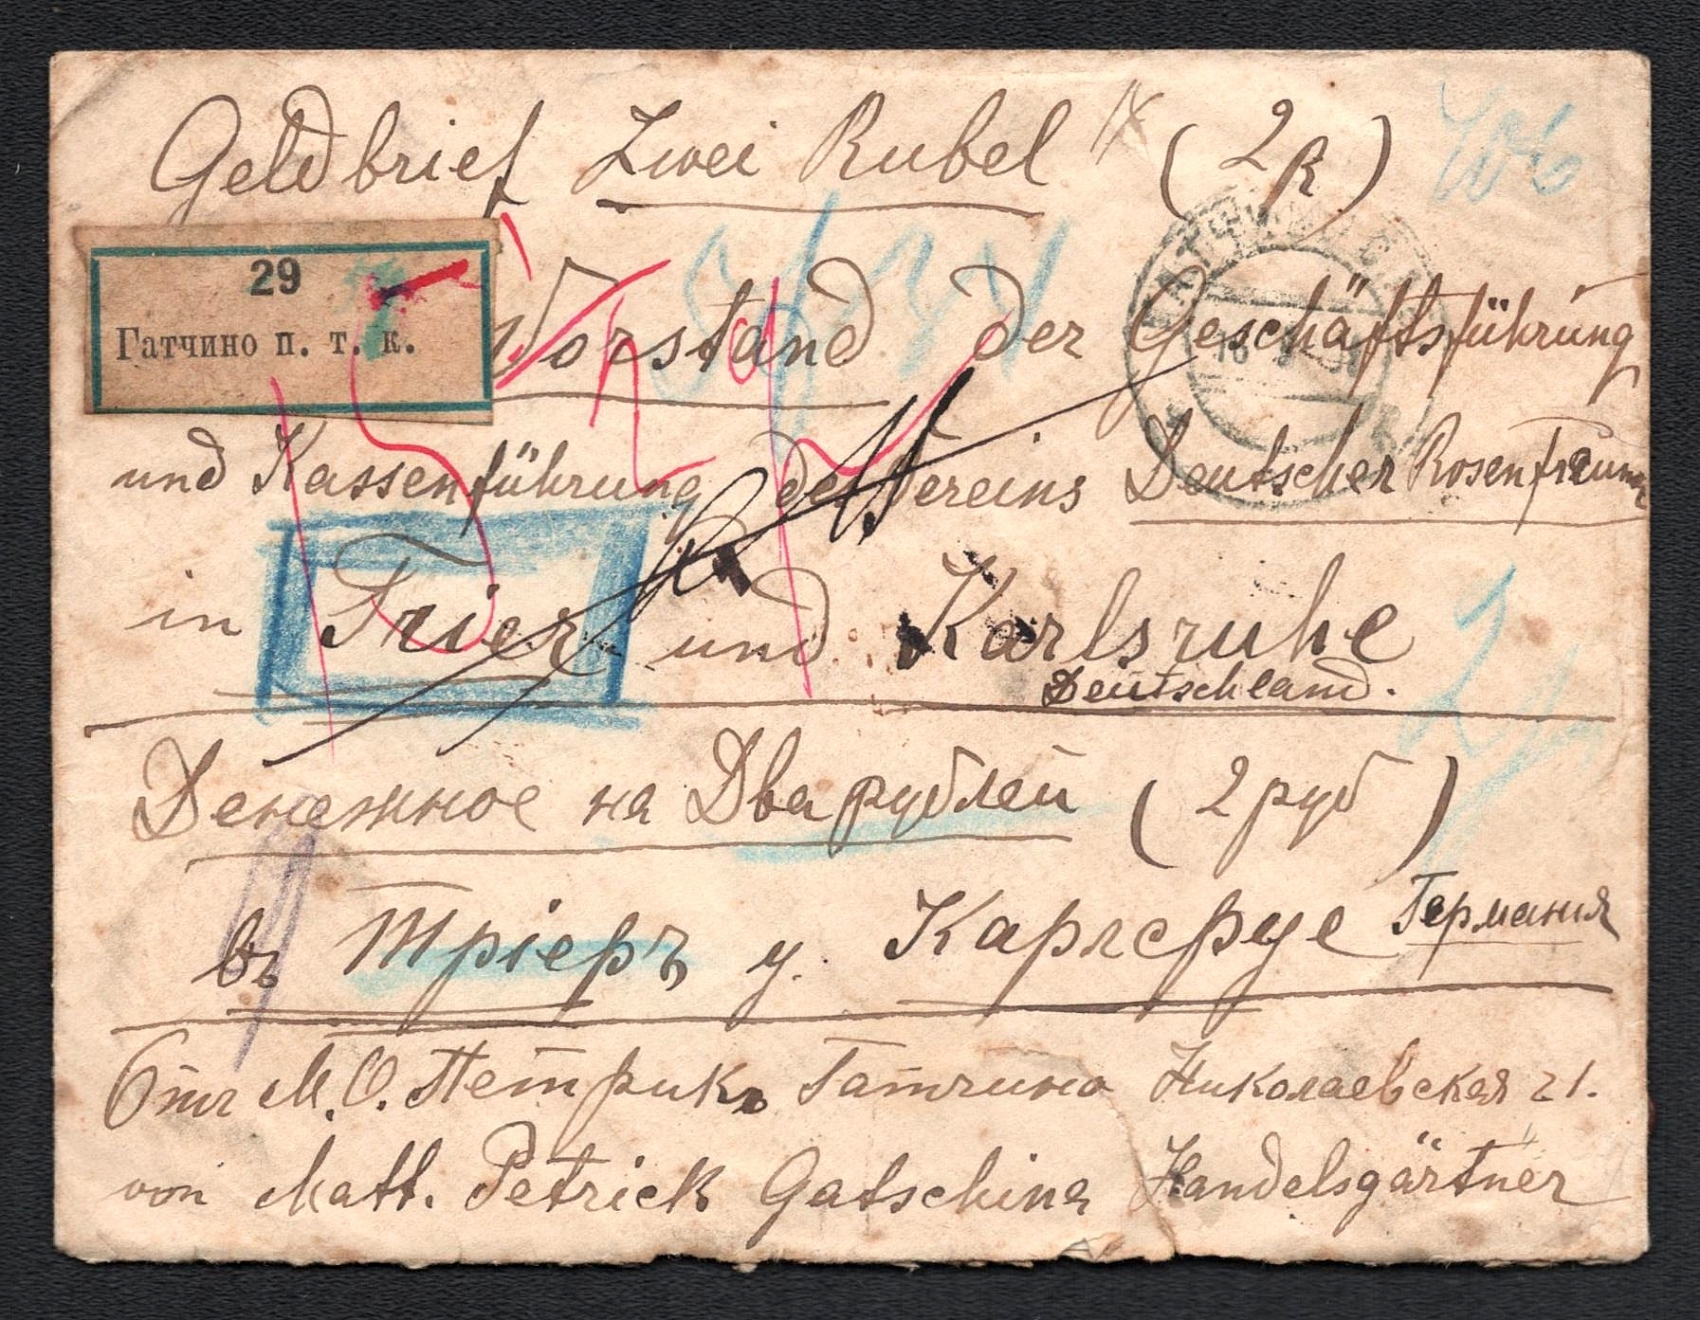 Geldbrief Zwei Rubel (2R)
29
Гатчино п. т. к.
Vorstand der Geschäftsführung
und Kassenführung des Vereins Deutscher Rosenfreunde
in Trier und Karlsruhe
Deutschland.
Денежное на Два рублей (2 руб)
въ Тріеръ у. Карлсруе Германия
Отъ М. О. Петрикъ Гатчино Николаевская 21.
von Matt. Petrick Gatschina Handelsgärtner